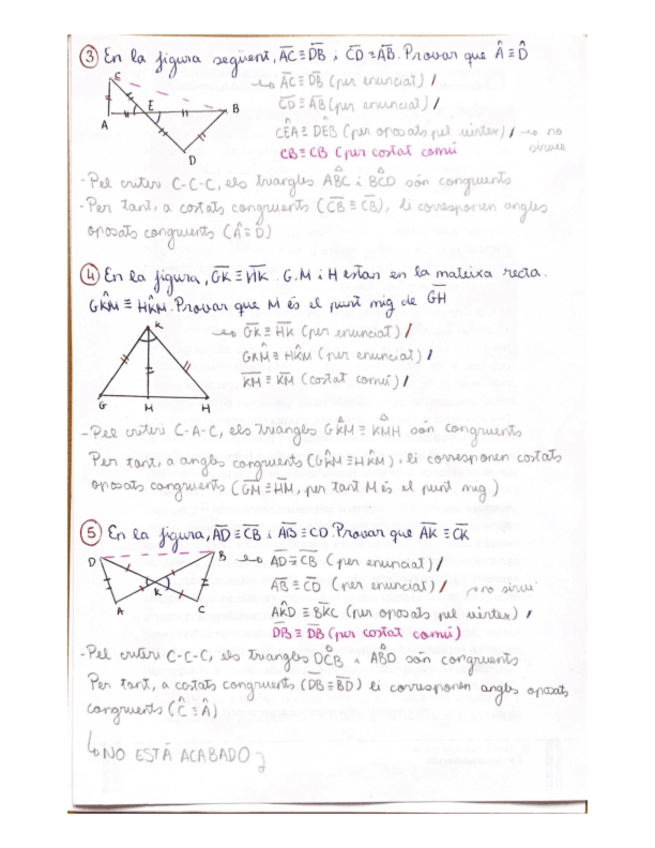 ③ En la figura següent, AC ≡ DB i CD ≡ AB. Provar que Â ≡ D̂
C
E
B
A
D
↳ AC ≡ DB (per enunciat) /
CD ≡ AB (per enunciat) /
CÊA ≡ DÊB (per oposats pel vèrtex) / → no sirveix
CB ≡ CB (per costat comú
- Pel criteri C-C-C, els triangles ABC i BCD són congruents
- Per tant, a costats congruents (CB ≡ CB), li corresponen angles
oposats congruents (Â ≡ D̂)
④ En la figura, GK ≡ HK. G, M i H estan en la mateixa recta.
GK̂M ≡ HK̂M. Provar que M és el punt mig de GH
K
G
M
H
↳ GK ≡ HK (per enunciat) /
GK̂M ≡ HK̂M (per enunciat) /
KM ≡ KM (costat comú) /
- Pel criteri C-A-C, els triangles GKM ≡ KMH són congruents
Per tant, a angles congruents (GK̂M ≡ HK̂M), li corresponen costats
oposats congruents (GM ≡ HM, per tant M és el punt mig)
⑤ En la figura, AD ≡ CB i AB ≡ CD. Provar que AK ≡ CK
D
B
K
A
C
↳ AD ≡ CB (per enunciat) /
AB ≡ CD (per enunciat) /
AK̂D ≡ BK̂C (per oposats pel vèrtex) /
DB ≡ DB (per costat comú)
- Pel criteri C-C-C, els triangles DCB i ABD són congruents
Per tant, a costats congruents (DB ≡ BD) li corresponen angles oposats
congruents (Ĉ ≡ Â)
↳ NO ESTÁ ACABADO